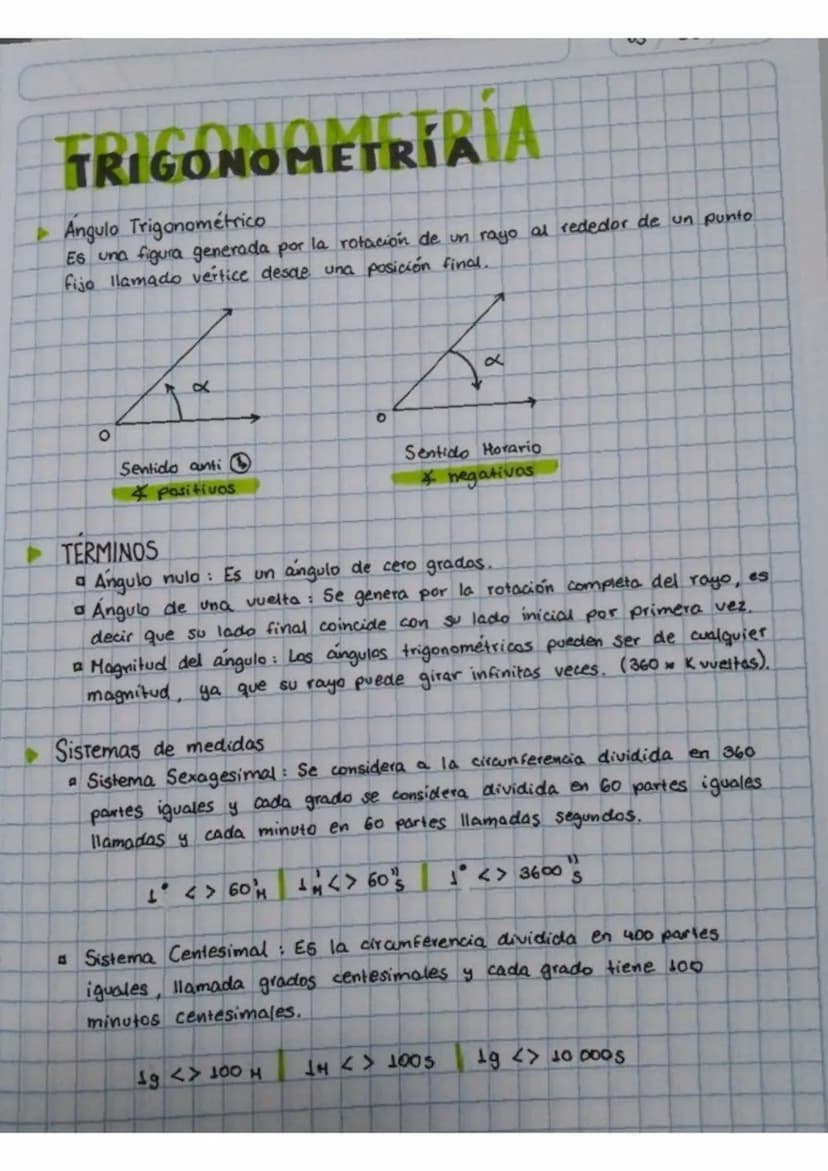 TRIGONOMETRÍA
Ángulo Trigonométrico
Es una figura generada por la rotación de un rayo al rededor de un punto
fijo llamado vértice desde una posición final.
α
α
O
O
Sentido anti
Sentido Horario
∡ positivos
∡ negativos
TÉRMINOS
Ángulo nulo: Es un ángulo de cero grados.
Ángulo de una vuelta: Se genera por la rotación completa del rayo, es
decir que su lado final coincide con su lado inicial por primera vez.
Magnitud del ángulo: Los ángulos trigonométricos pueden ser de cualquier
magnitud, ya que su rayo puede girar infinitas veces. (360 × K vueltas).
Sistemas de medidas
Sistema Sexagesimal: Se considera a la circunferencia dividida en 360
partes iguales y cada grado se considera dividida en 60 partes iguales
llamadas y cada minuto en 60 partes llamadas segundos.
1° <> 60'M | 1'M <> 60"S | 1° <> 3600"S
Sistema Centesimal: Es la circunferencia dividida en 400 partes
iguales, llamada grados centesimales y cada grado tiene 100
minutos centesimales.
1g <> 100 M | 1M <> 100S | 1g <> 10 000S